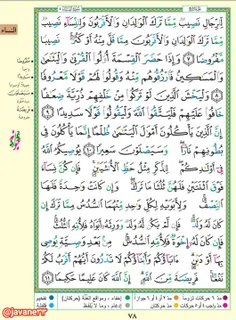 النساء
لِّلرِّجَالِ نَصِيبٌ مِّمَّا تَرَكَ الْوَالِدَانِ وَالْأَقْرَبُونَ وَلِلنِّسَاءِ نَصِيبٌ
مِّمَّا تَرَكَ الْوَالِدَانِ وَالْأَقْرَبُونَ مِمَّا قَلَّ مِنْهُ أَوْ كَثُرَ نَصِيبًا
مَّفْرُوضًا ٧ وَإِذَا حَضَرَ الْقِسْمَةَ أُولُو الْقُرْبَى وَالْيَتَامَى
وَالْمَسَاكِينُ فَارْزُقُوهُم مِّنْهُ وَقُولُوا لَهُمْ قَوْلًا مَّعْرُوفًا
٨ وَلْيَخْشَ الَّذِينَ لَوْ تَرَكُوا مِنْ خَلْفِهِمْ ذُرِّيَّةً ضِعَافًا
خَافُوا عَلَيْهِمْ فَلْيَتَّقُوا اللَّهَ وَلْيَقُولُوا قَوْلًا سَدِيدًا ٩
إِنَّ الَّذِينَ يَأْكُلُونَ أَمْوَالَ الْيَتَامَى ظُلْمًا إِنَّمَا يَأْكُلُونَ فِي
بُطُونِهِمْ نَارًا وَسَيَصْلَوْنَ سَعِيرًا ١٠ يُوصِيكُمُ اللَّهُ
فِي أَوْلَادِكُمْ لِلذَّكَرِ مِثْلُ حَظِّ الْأُنثَيَيْنِ فَإِن كُنَّ نِسَاءً
فَوْقَ اثْنَتَيْنِ فَلَهُنَّ ثُلُثَا مَا تَرَكَ وَإِن كَانَتْ وَاحِدَةً فَلَهَا
النِّصْفُ وَلِأَبَوَيْهِ لِكُلِّ وَاحِدٍ مِّنْهُمَا السُّدُسُ مِمَّا تَرَكَ إِن
كَانَ لَهُ وَلَدٌ فَإِن لَّمْ يَكُن لَّهُ وَلَدٌ وَوَرِثَهُ أَبَوَاهُ فَلِأُمِّهِ الثُّلُثُ
فَإِن كَانَ لَهُ إِخْوَةٌ فَلِأُمِّهِ السُّدُسُ مِن بَعْدِ وَصِيَّةٍ يُوصِي
بِهَا أَوْ دَيْنٍ آبَاؤُكُمْ وَأَبْنَاؤُكُمْ لَا تَدْرُونَ أَيُّهُمْ أَقْرَبُ لَكُمْ
نَفْعًا فَرِيضَةً مِّنَ اللَّهِ إِنَّ اللَّهَ كَانَ عَلِيمًا حَكِيمًا ١١
٧٨
@javanerr